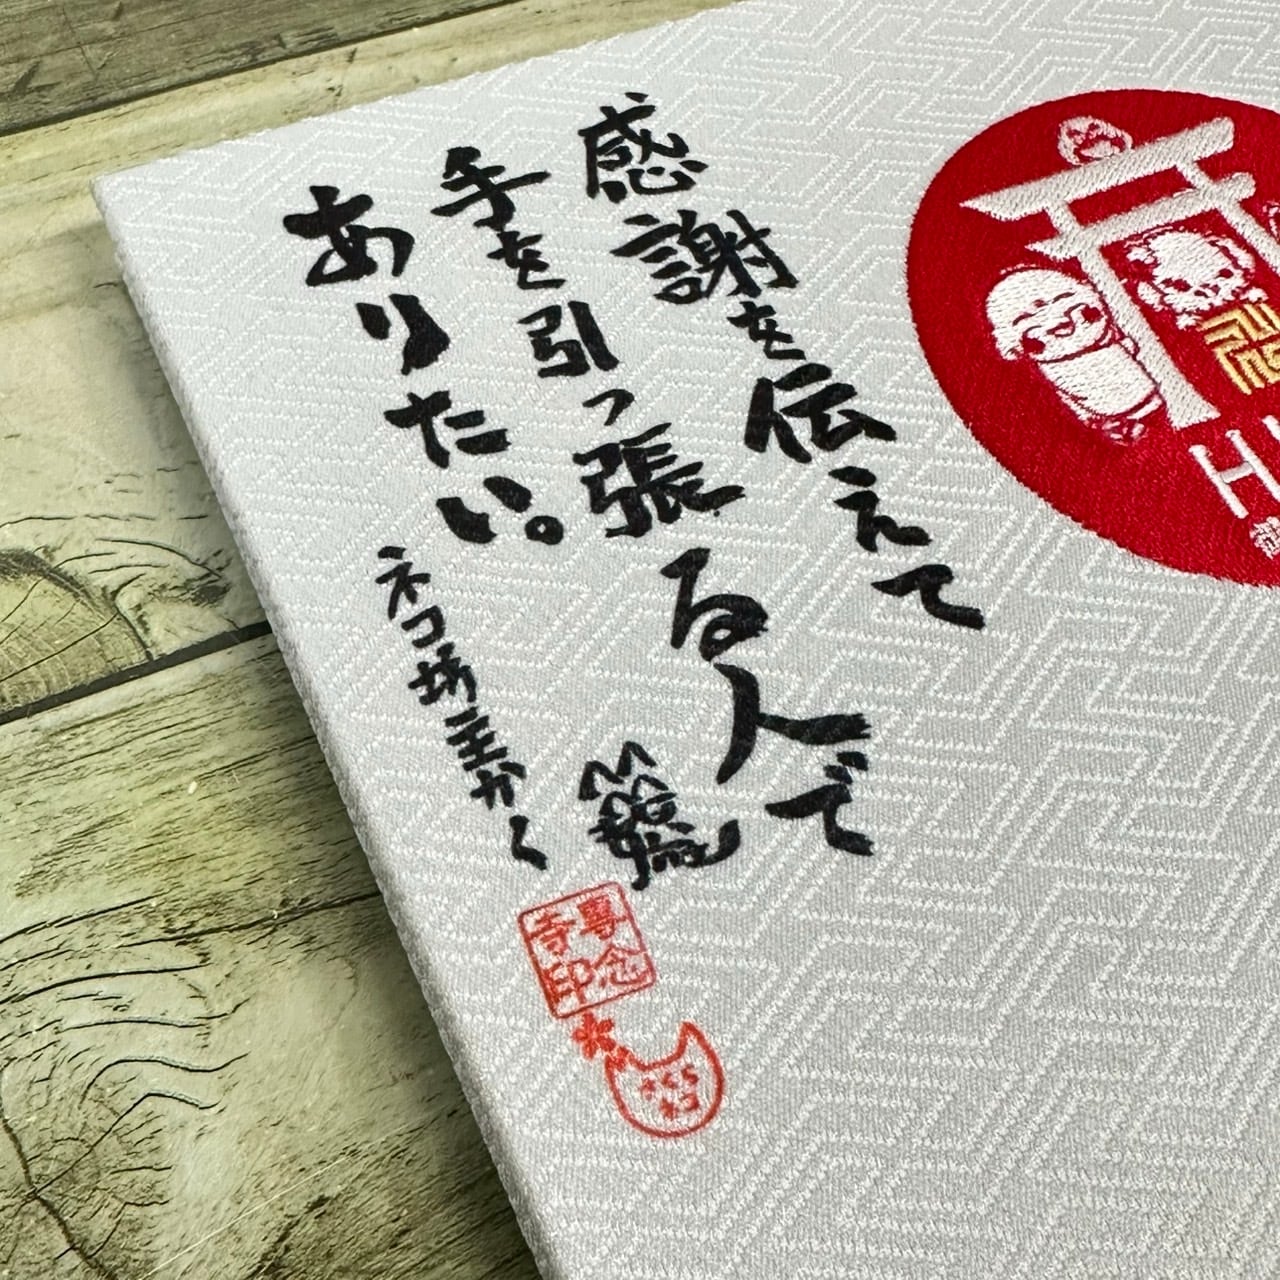 感謝を伝えて
手を引っ張る人で
ありたい。
ネコ坊主かく
専念
寺印
H